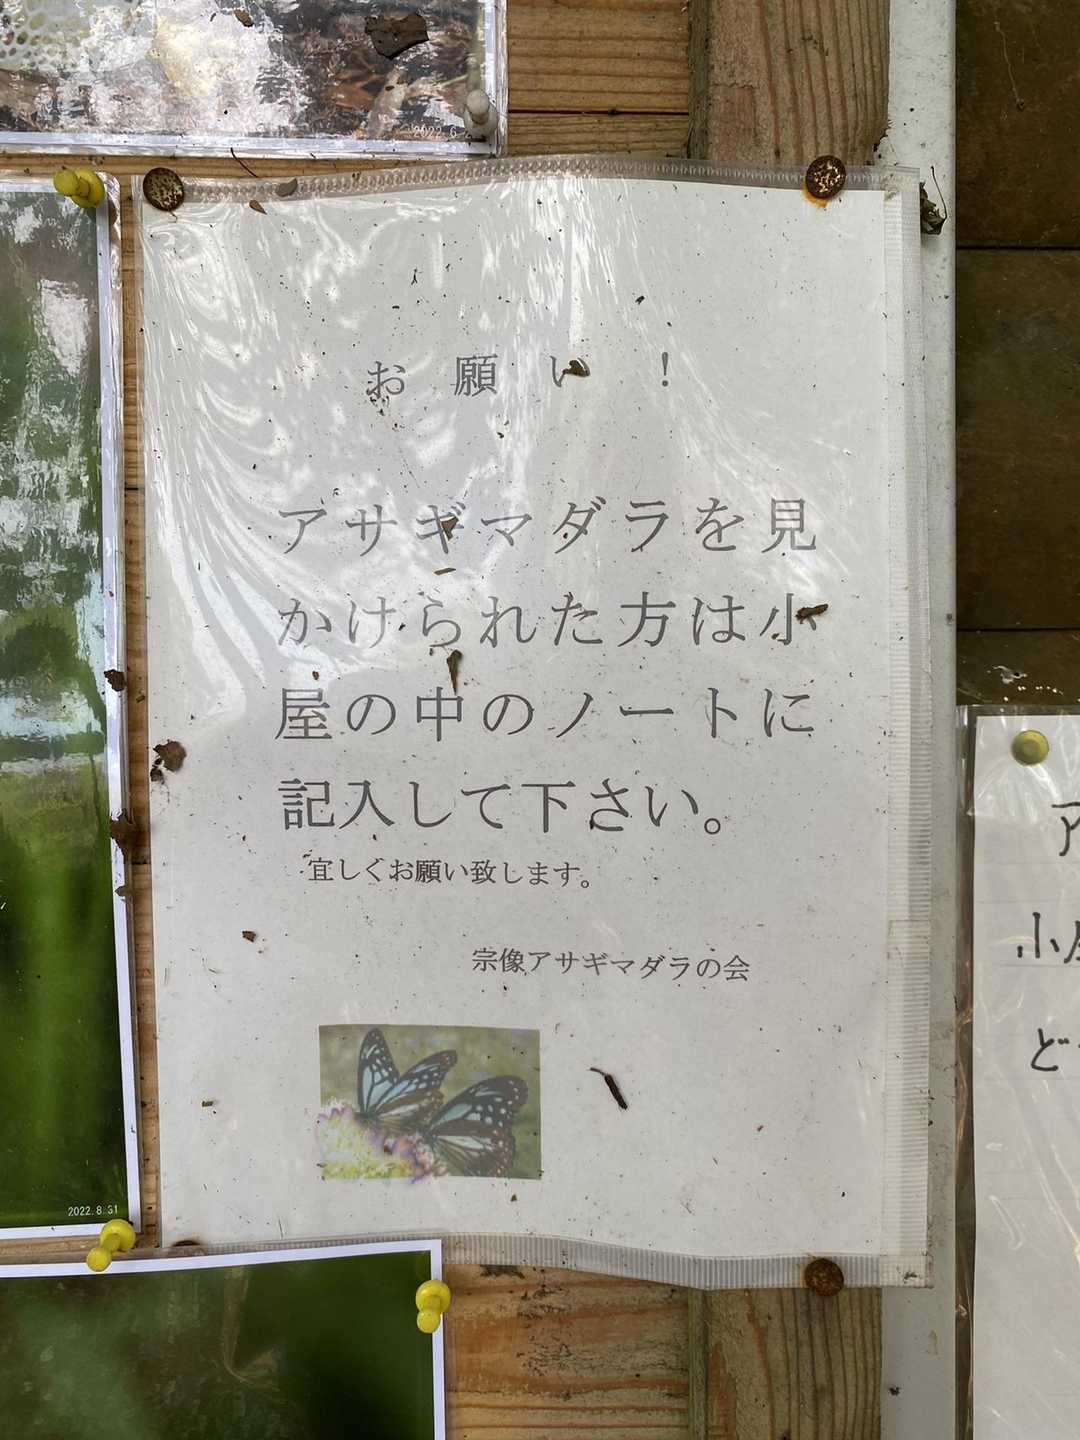 2022.6.
お願い！
アサギマダラを見
かけられた方は小
屋の中のノートに
記入して下さい。
宜しくお願い致します。
宗像アサギマダラの会
2022.8.31
ア
小屋
ど